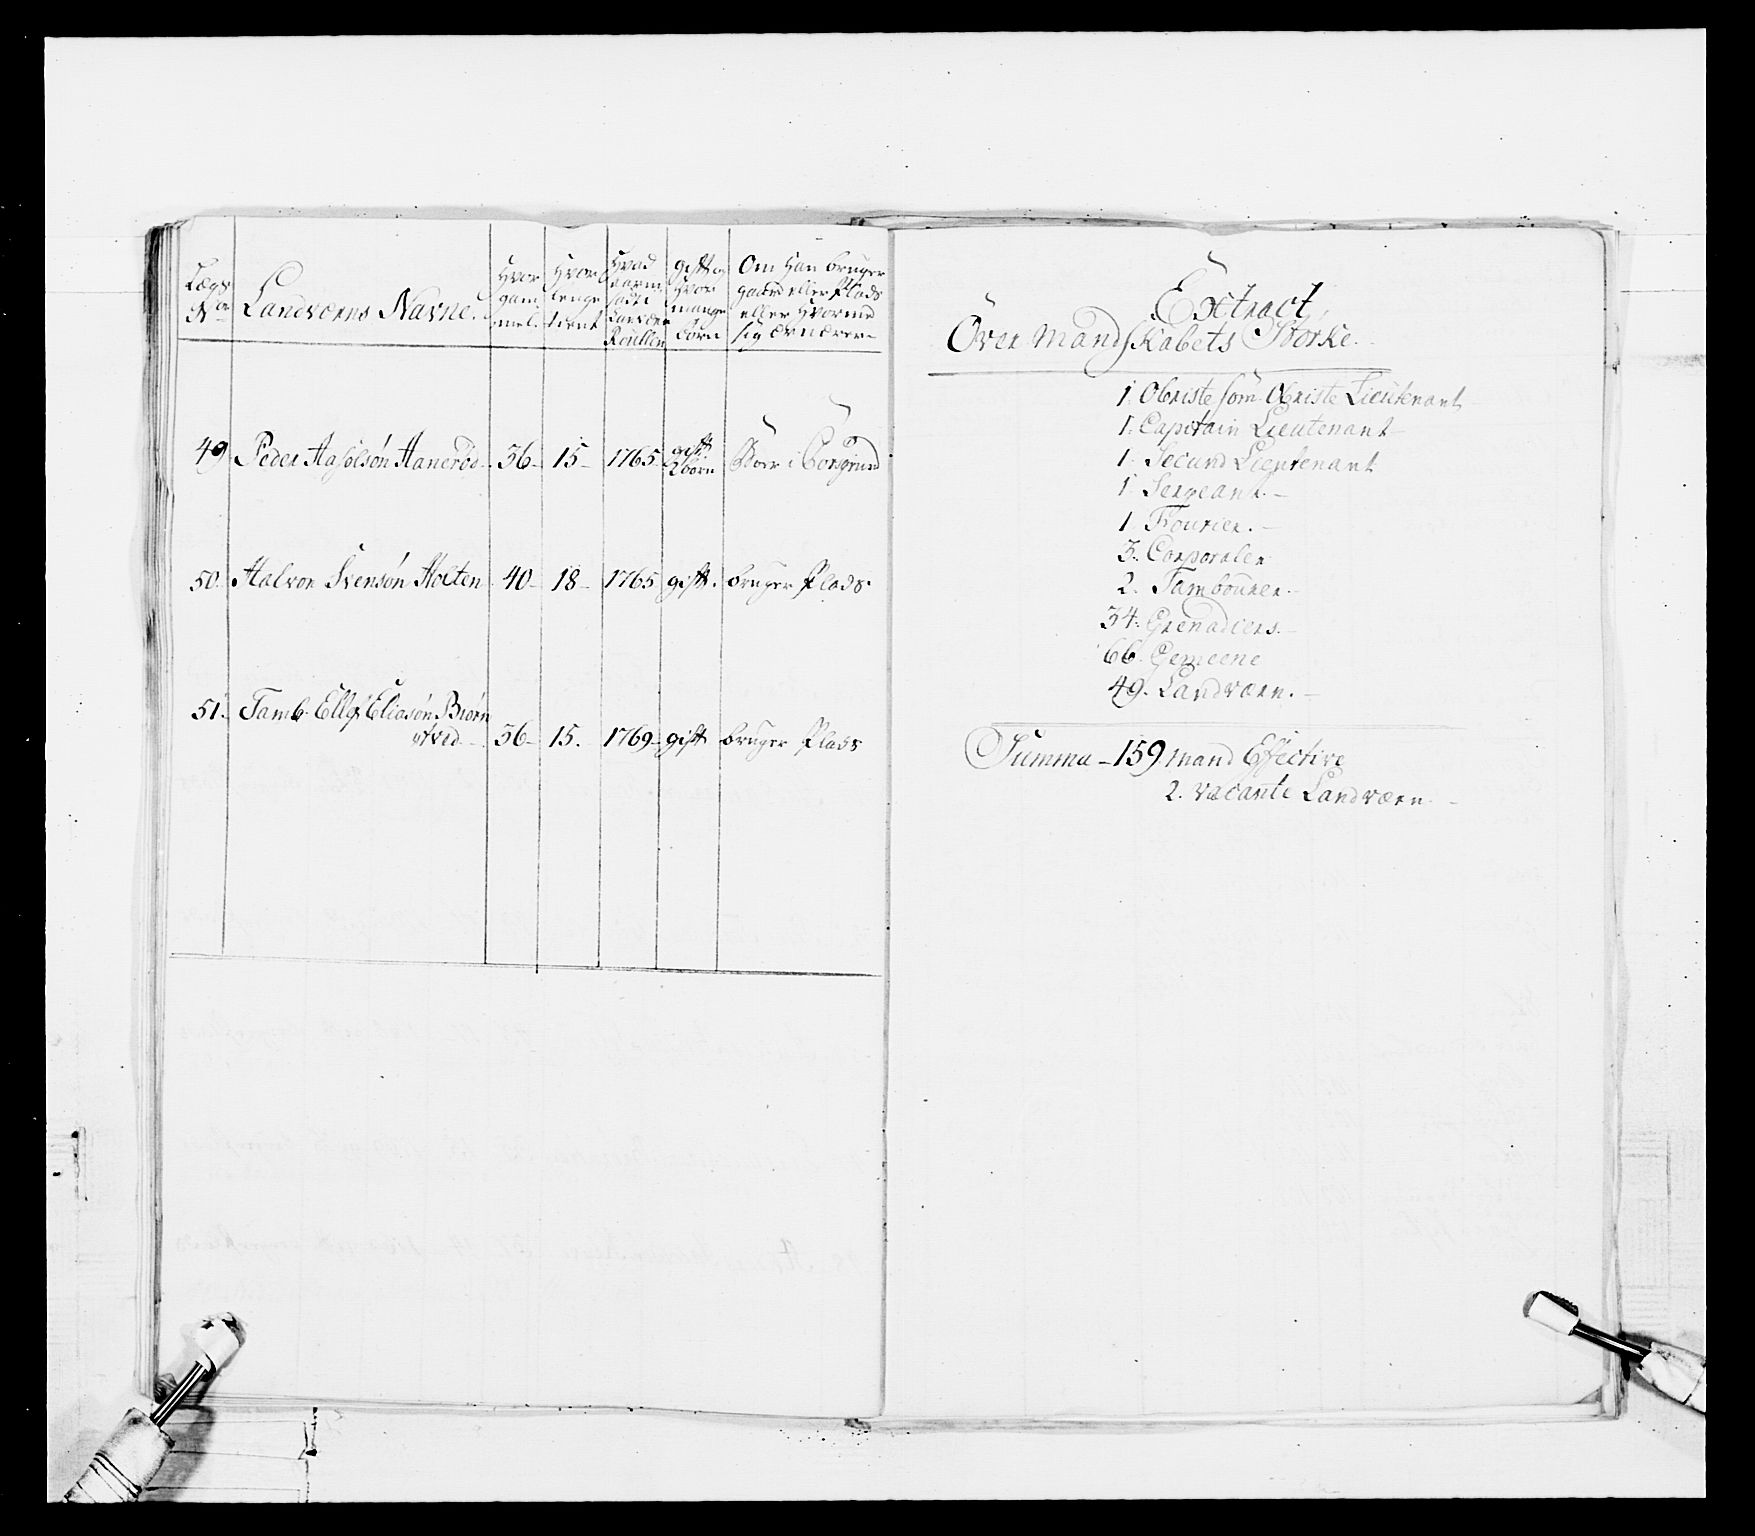 Lægs No
Landværns Navne.
Hvor gam mel.
Hvor lenge tient
Hvad
Roullen
gift og Hvor mange børn
Om Han bruger gaard eller Plads eller Hvormed sig ernærer
49. Peder Aasolsøn Hanerød 36 15 1765 gift. 2 børn Boer i Porsgrund
50. Halvor Svensøn Holten 40 18 1765 gift. bruger Plads.
51. Tamb. Ellef Eliasøn Biørn
tved 36 15. 1769 gift bruger Plads
Extract,
Over Mandskabets Storke.
1. Obriste som Obriste Lieutenant
1. Capitain Lieutenant
1. Secund Lieutenant
1. Sergeant.
1. Fourier.
3. Corporaler
2. Tambourer
34. Grenadiers.
66. Gemeene
49. Landværn.
Summa 159 mand Effective
2. vacante Landværn.